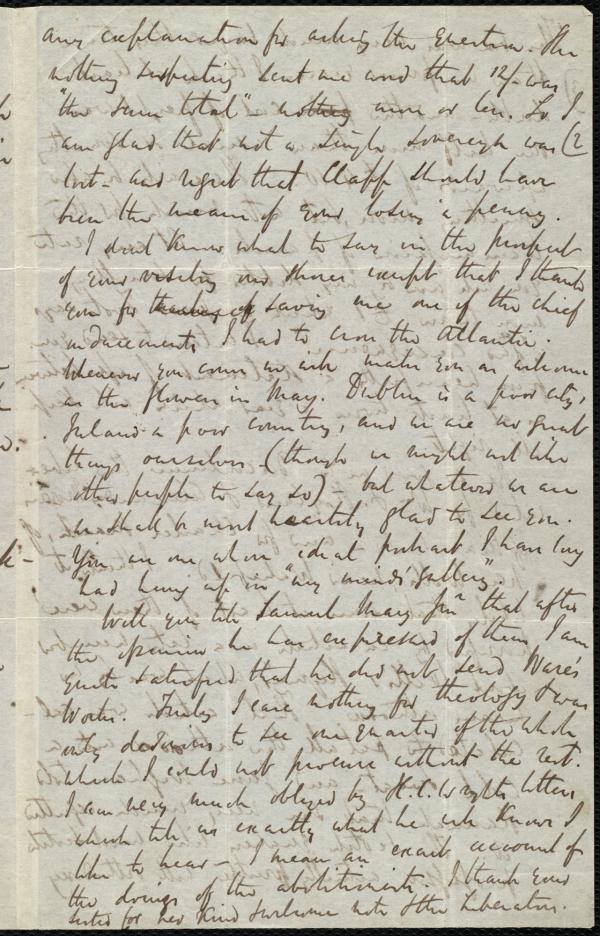 any explanation for asking the question. She
nothing suspecting sent me word that 12/- was
"the sum total" nothing more or less. So I
am glad that not a single sovereign was (2
lost - and regret that Clapp should have
been the means of your losing a penny.
I don't know what to say in the prospect
of your visiting our shores except that I thank
you for thinking of saving me one of the chief
inducements I had to cross the Atlantic.
Whenever you come we will make you as welcome
as the flowers in May. Dublin is a poor city,
Ireland a poor country, and we are no great
things ourselves (though we might not like
other people to say so) - but whatever we are
we shall be most heartily glad to see you.
You are one whose ideal portrait I have long
had hung up in "my mind's gallery".
Will you tell Samuel May Junr that after
the opinion he has expressed of them I am
quite satisfied that he did not send Ware's
Works. Truly I care nothing for theology & was
only desirous to see one quarter of the whole
which I could not procure without the rest.
I am very much obliged by H. C. Wright's letters
which tell us exactly what he well knows I
like to hear - I mean an exact account of
the doings of the abolitionists. I thank your
sister for her kind & welcome note & the Liberators.